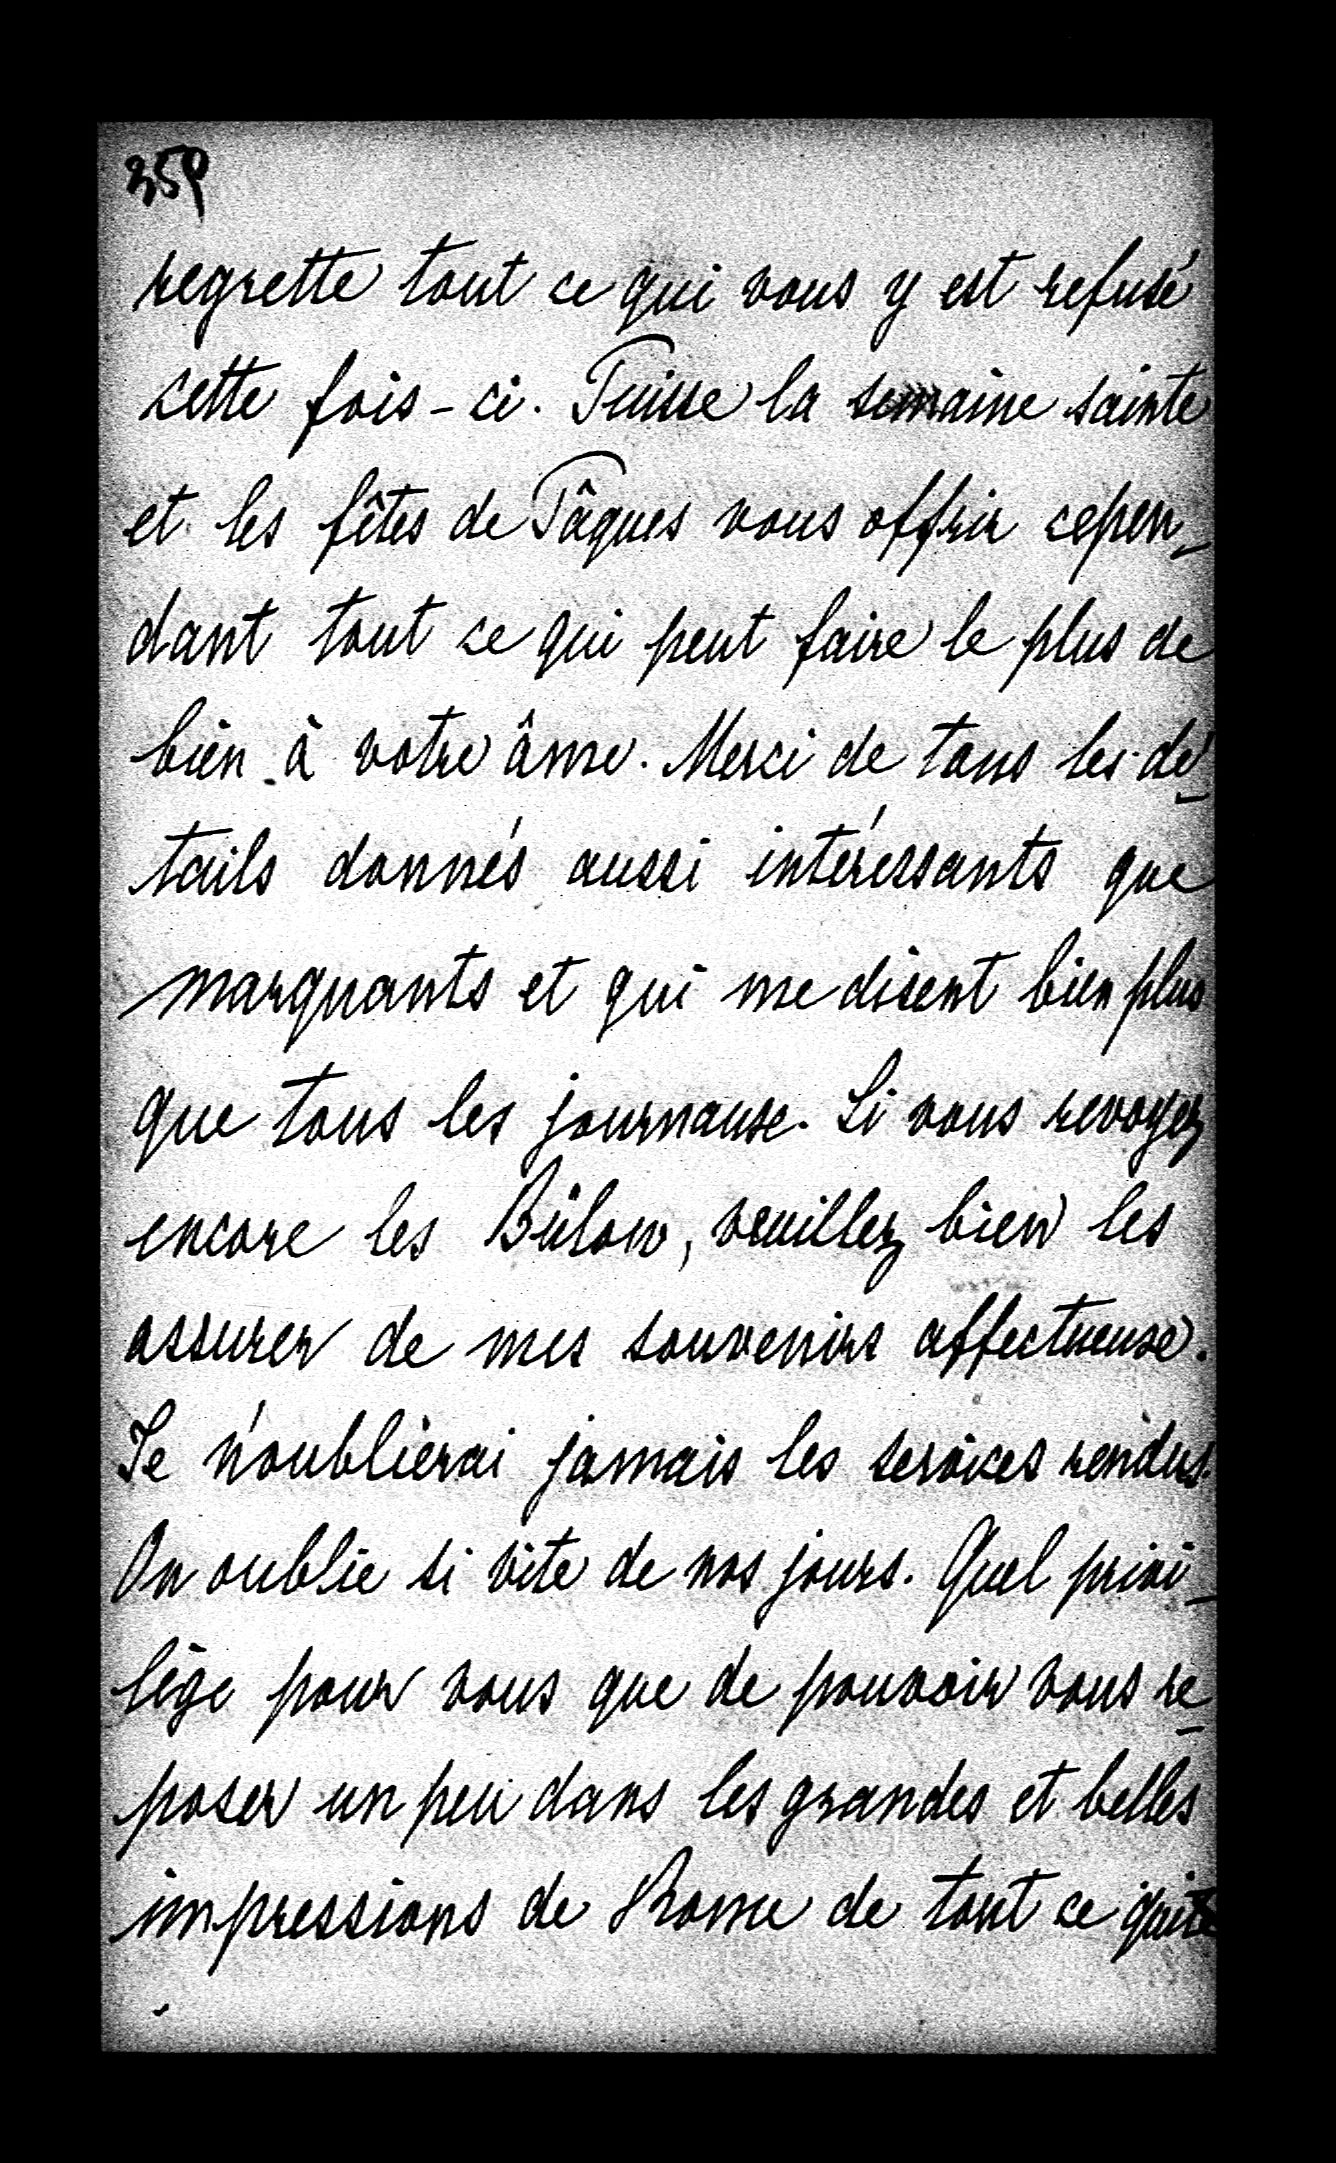 359
regrette tout ce qui vous y est refusé
cette fois-ci. Puisse la semaine sainte
et les fêtes de Pâques vous offrir cepen-
dant tout ce qui peut faire le plus de
bien à votre âme. Merci de tous les dé-
tails donnés aussi intéressants que
marquants et qui me disent bien plus
que tous les journaux. Si vous revoyez
encore les Bülow, veuillez bien les
assurer de mes souvenirs affectueux.
Je n'oublierai jamais les services rendus.
On oublie si vite de nos jours. Quel privi-
lège pour vous que de pouvoir vous re-
poser un peu dans les grandes et belles
impressions de Rome de tout ce